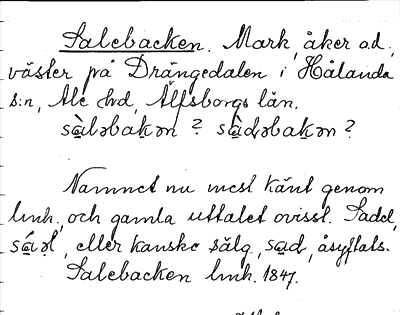 Salebacken. Mark, åker o.d.,
väster på Drängedalen i Hålanda
s:n, Ale hd, Älfsborgs län.
sà̤ləbakən ? sà̤dəbakən ?
Namnet nu mest känt genom
lmh., och gamla uttalet ovisst. Sadel,
sá̤əl, eller kanske sälg, sa̤d, åsyftats.
Salebacken lmh. 1847.